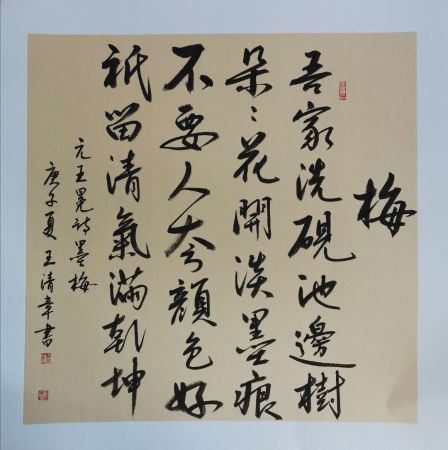 梅
吾家洗砚池邊樹
朵〻花開淡墨痕
不要人夸顔色好
祇留清氣滿乾坤
元王冕詩墨梅
庚子夏王清章書